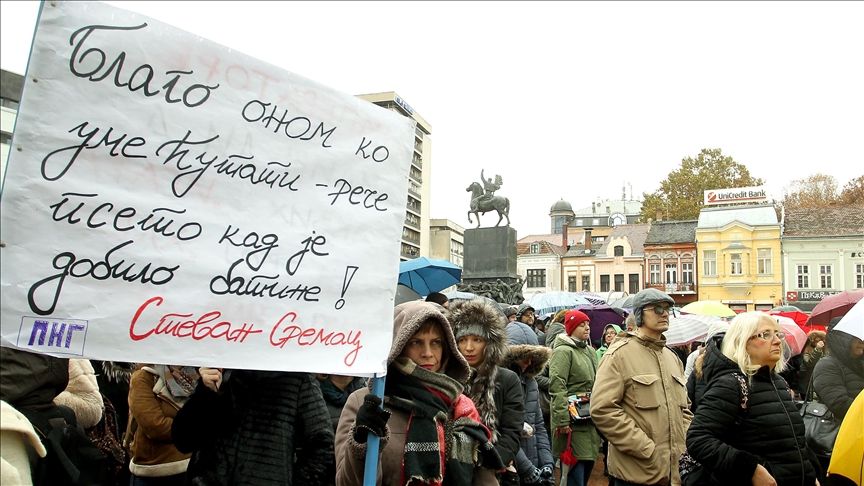 Благо оном ко
уме ћутати - рече
псето кад је
добило батине!
Стеван Сремац
ПНГ
UniCredit Bank